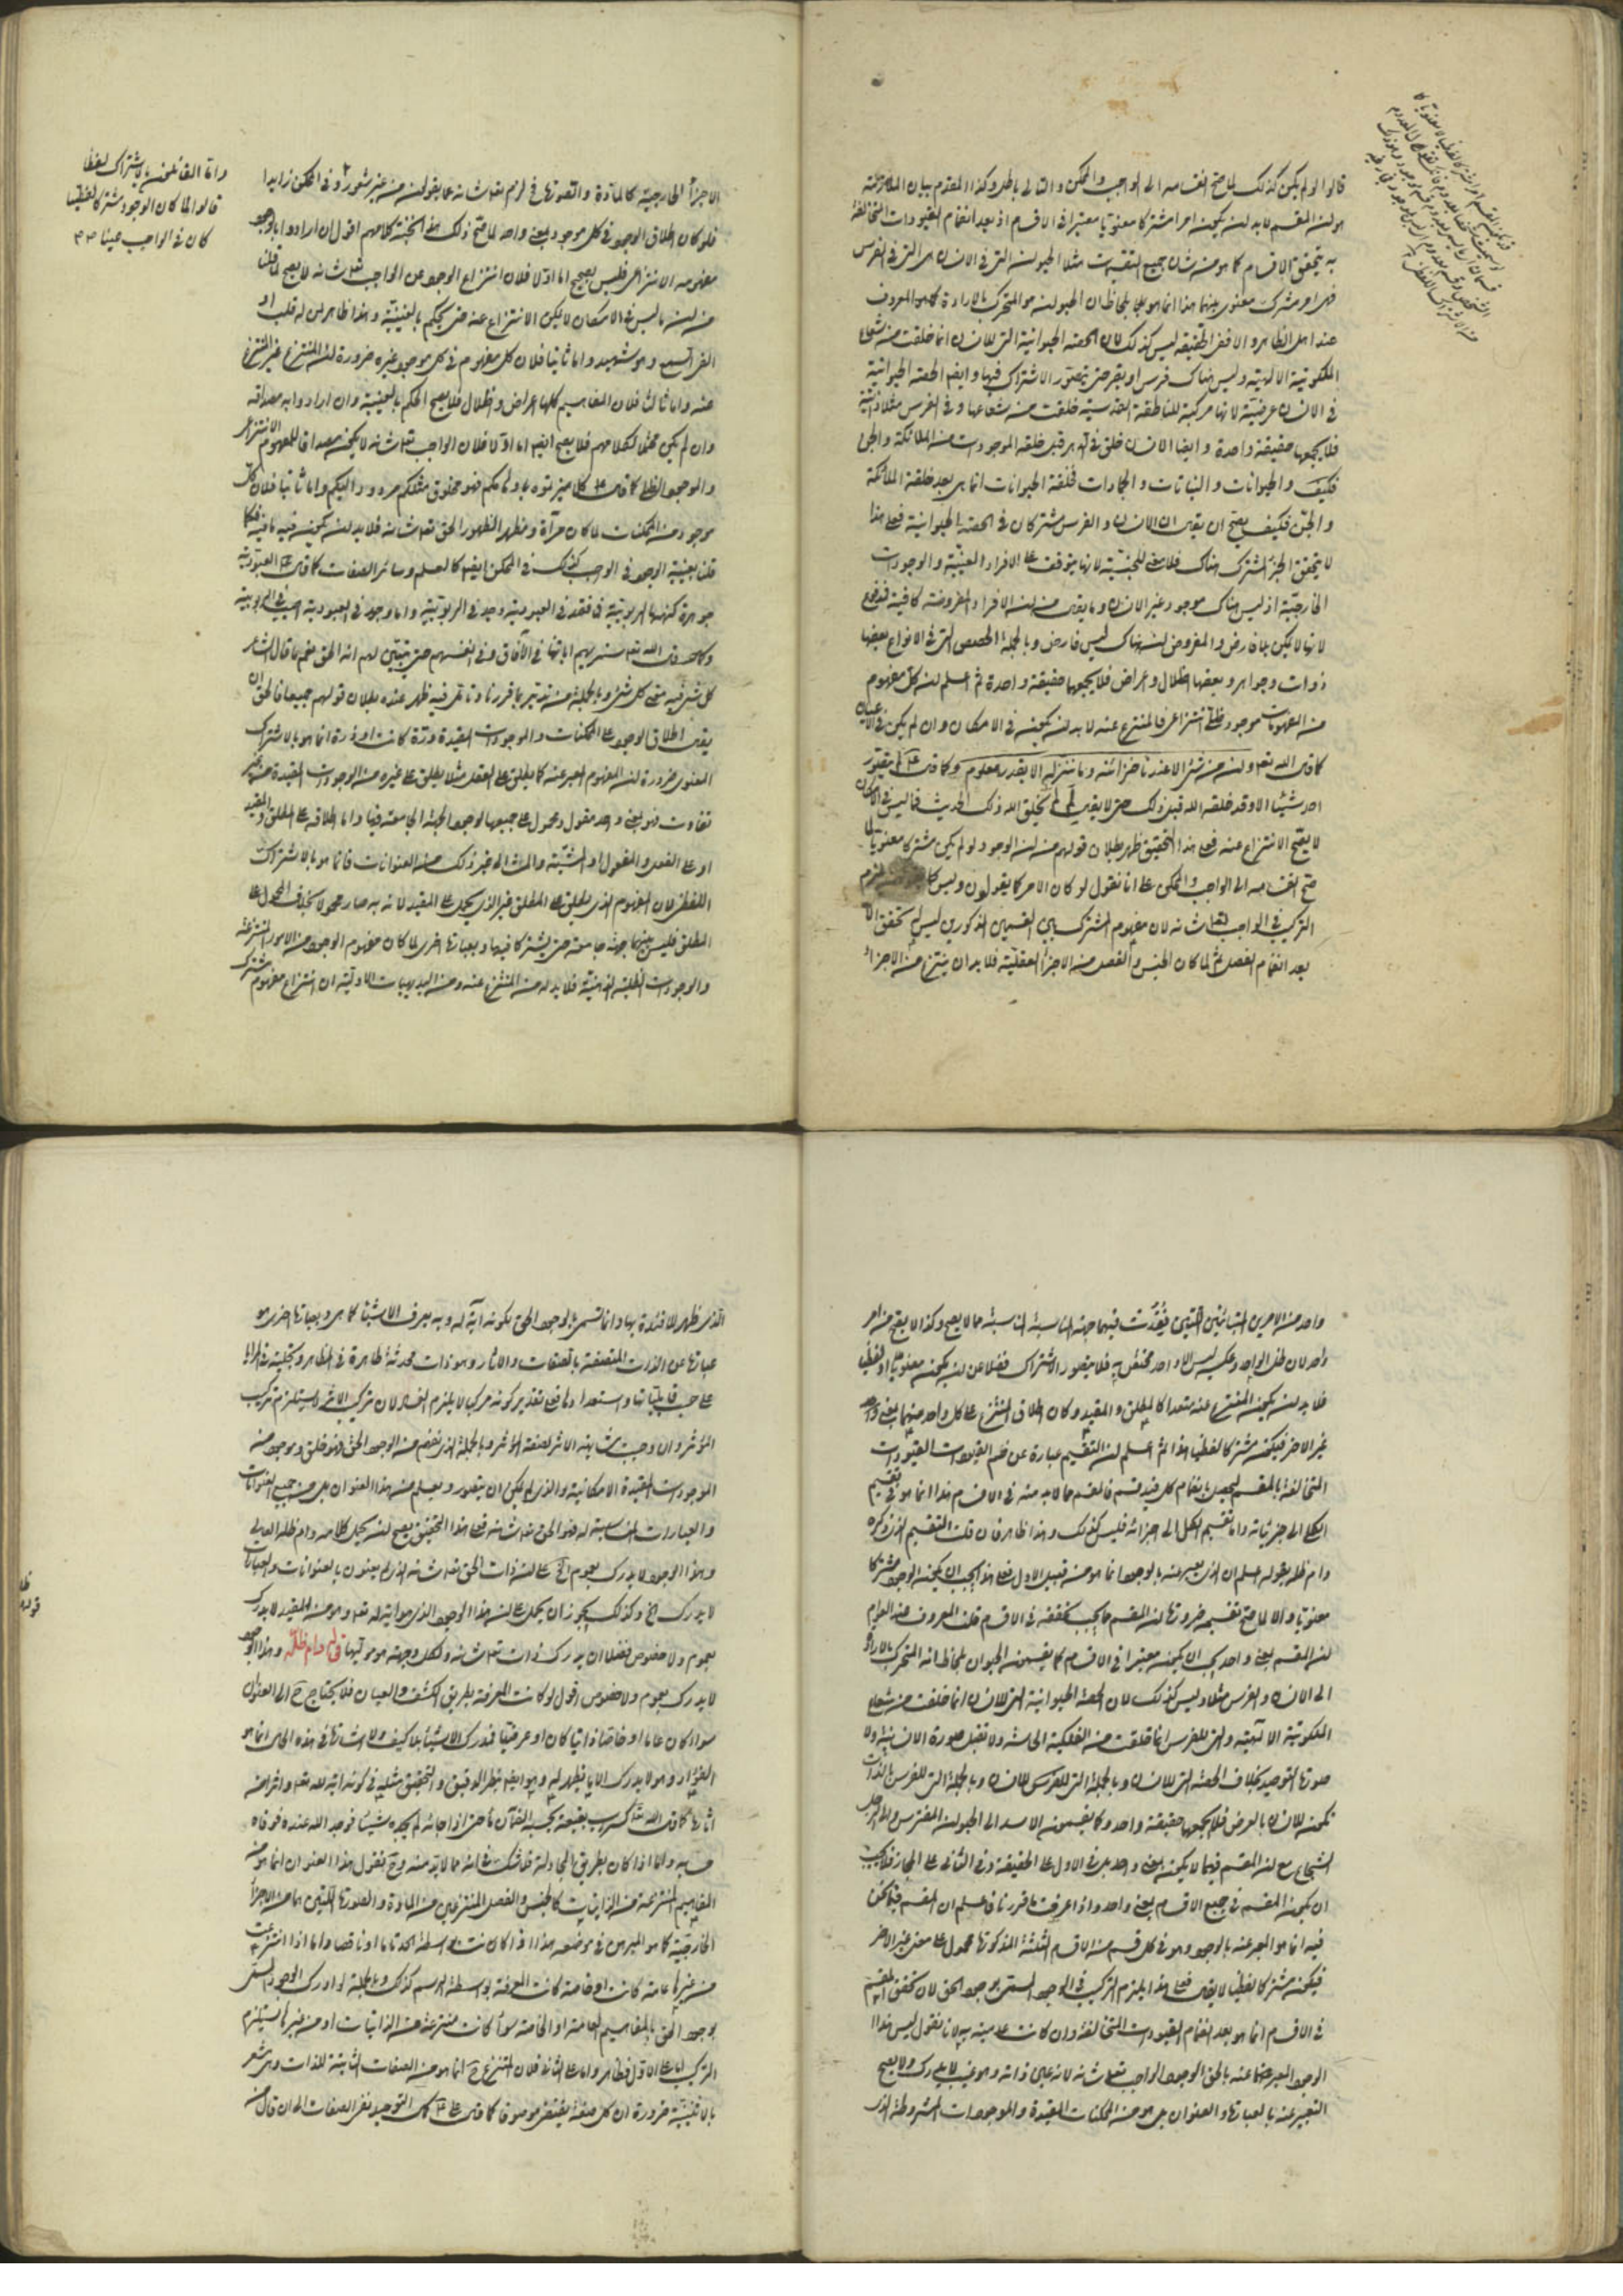 قالوا لو لم يكن كذلك لما صح انقسامه الى الواجب والممكن و التالى باطل وكذا المقدم بيان الملازمة
هو ان المقسم لابد ان يكون امرا مشتركا معنويا معتبرا فى الاقسام اذ بعد انضمام القيودات المتخالفة
به يتحقق الاقسام كما هو من شان جميع التقسيمات مثلا الحيوان التى فى الانسان هى التى فى الفرس
فهى امر مشترك معنوى بينهما هذا انما هو بلحاظ ان الحيوان هو المتحرك بالارادة كما هو المعروف
عند اهل الظاهر والا ففى الحقيقة ليس كذلك لان الحصة الحيوانية التى للانسان انما خلقت من شعاع
الملكوتية الالهية وليس هناك فرس او بقر حتى يتصور الاشتراك فيها وايضا الحصة الحيوانية
فى الانسان عرضية لانها مركبة للناطقة القدسية خلقت من شعاعها وفى الفرس مثلا ذاتية
فلا يجمعها حقيقة واحدة وايضا الانسان خلق فى الدهر قبل خلقه الموجودات من الملائكة والجن
فكيف والحيوانات والنباتات والجمادات فخلقة الحيوانات انما هى بعد خلقة الملائكة
والجن فكيف يصح ان يقال ان الانسان والفرس مشتركان فى الحصة الحيوانية فعلى هذا
لا يتحقق الجزء المشترك هناك فلا معنى للجنسية لانها يتوقف على الافراد العينية والوجودات
الخارجية اذ ليس هناك موجود غير الانسان وما يقال من ان الافراد المفروضة كافية فمدفوع
لانها لا يكون بلا فارض والمفروض ان هناك ليس فارض وبالجملة الحصص التى فى الانواع بعضها
ذوات وجواهر وبعضها اظلال واعراض فلا يجمعها حقيقة واحدة ثم اعلم ان كل مفهوم
من المفهومات موجود ظلى انتزاعى فالمنتزع عنه لابد ان يكون فى الامكان وان لم يكن فى الاعيان
كما قال الله تعالى وان من شئ الا عندنا خزائنه وما ننزله الا بقدر معلوم وكما قال ع لم يتصور
احد شيئا الا وقد خلقه الله قبل ذلك حتى لا يقال لم لم يخلق الله ذلك الحديث فما ليس فى الامكان
لا يصح الانتزاع عنه فعلى هذا التحقيق ظهر بطلان قولهم من ان الوجود لو لم يكن مشتركا معنويا لما
صح انقسامه الى الواجب والممكن على انا نقول لو كان الامر كما يقولون وليس كما يلزم
التركيب فى الواجب تعالى شانه لان مفهوم المشترك بين القسمين المذكورين ليس يتحقق الا
بعد انضمام الفصل ثم لما كان الجنس والفصل من الاجزاء العقلية فلابد ان ينتزع من الاجزاء
الاجزاء الخارجية كالمادة والصورة فى لزم تعالى شانه عما يقولون من غير شعور وفى الممكن زايدا
واما القائلون بالاشتراك لفظا
قالوا لما كان الوجود مشتركا لفظيا
كان فى الواجب عينا
فلو كان اطلاق الوجود فى كل موجود بمعنى واحد لما صح ذلك هذا نتيجة كلامهم اقول ان ارادوا بالوجود
مفهومه الانتزاعى فليس بصحيح اما اولا فلان انتزاع الوجود عن الواجب تعالى شانه لا يصح لما قلنا
من ان ما ليس فى الامكان لا يمكن الانتزاع عنه حتى يحكم بالعينية وهذا ظاهر لمن له قلب او
القى السمع وهو شهيد واما ثانيا فلان كل مفهوم فى كل موجود غيره ضرورة ان المنتزع غير المنتزع
عنه واما ثالثا فلان المفاهيم كلها اعراض واظلال فلا يصح الحكم بالعينية وان ارادوا به مصداقه
وان لم يكن محتملا لكلامهم فلا يصح ايضا اما اولا فلان الواجب تعالى شانه لا يكون مصداقا للمفهوم الانتزاعى
والموجود الظلى كما قال ع كلما ميزتموه باوهامكم فهو مخلوق مثلكم مردود اليكم واما ثانيا فلان كل
موجود من الممكنات لما كان مرآة ومظهرا لظهور الحق تعالى شانه فلابد ان يكون فيه ما فيه فكما
قلنا بعينية الوجود فى الواجب كذلك فى الممكن ايضا كالعلم وسائر الصفات كما قال ع العبودية
جوهرة كنهها الربوبية فما فقد فى العبودية وجد فى الربوبية وما وجد فى العبودية اصيب فى الربوبية
وكما قال الله تعالى سنريهم اياتنا فى الآفاق وفى انفسهم حتى يتبين لهم انه الحق فنعم ما قال الشاعر
كل شئ فيه معنى كل شئ وبالجملة من تدبر بما قررنا وتامل فيه ظهر عنده بطلان قولهم جميعا فالحق ان
يقال اطلاق الوجود على الممكنات والموجودات المقيدة درة كانت او ذرة انما هو بالاشتراك
المعنوى ضرورة ان المفهوم المعبر عنه كما يطلق على العقل مثلا يطلق على غيره من الوجودات المقيدة من غير
تفاوت فهو بمعنى واحد مقول ومحمول على جميعها لوجود الجهة الجامعة فيها واما اطلاقه على المطلق والمقيد
او على الفعل والمفعول او المشية والمشاء الى غير ذلك من العنوانات فانما هو بالاشتراك
اللفظى لان المفهوم الذى يطلق على المطلق غير الذى يحمل على المقيد لانه به صار محمولا بخلاف المحمول على
المطلق فليس بينهما جهة جامعة حتى يشتركا فيها وبعبارة اخرى لما كان مفهوم الوجود من الامور المنتزعة
والوجودات الظلية الذهنية فلابد له من المنتزع عنه ومن البديهيات الاولية ان انتزاع مفهوم مشترك
واحد من الامرين المتبائنين اللتين فقدت فيهما جهة المناسبة مما لا يصح وكذا لا يصح من امر
واحد لان ظل الواحد وعكسه ليس الا واحد مختص به فلا يتصور الاشتراك فضلا عن ان يكون معنويا او لفظيا
فلابد ان يكون المنتزع عنه متعددا كالمطلق والمقيد وكان اطلاق المنتزع على كل واحد منهما بمعنى واحد
غير الاخر فيكون مشتركا لفظيا هذا ثم اعلم ان التقسيم عبارة عن ضم القيودات القيودات
المتخالفة بالمقسم ليحصل بانضمام كل قيد قسم فالمقسم مما لابد منه فى الاقسام هذا انما هو فى تقسيم
الكلى الى جزئياته واما تقسيم الكل الى اجزائه فليس كذلك وهذا ظاهر فان قلت التقسيم الذى ذكره
دام ظله بقوله اعلم ان الذى يعبر عنه بالوجود انما هو من قبيل الاول فعلى هذا يجب ان يكون الوجود مشتركا
معنويا والا لما صح تقسيمه ضرورة ان المقسم مما يجب تحققه فى الاقسام قلت المعروف عند العوام
ان المقسم بمعنى واحد يجب ان يكون معتبرا فى الاقسام كما يقسمون الحيوان بلحاظ انه المتحرك بالارادة
الى الانسان والفرس مثلا وليس كذلك لان الحصة الحيوانية التى للانسان انما خلقت من شعاع
الملكوتية الالهية والتى للفرس انما خلقت من الفلكية الى شه ولا تقبل صورة الانسانية ولا
صورة التوحيد بخلاف الحصة التى للانسان وبالجملة التى للفرس للانسان وبالجملة التى للفرس بالذات
تكون للانسان بالعرض فلا يجمعها حقيقة واحد وكما يقسمون الاسد الى الحيوان المفترس والرجل
الشجاع مع ان المقسم فيهما لا يكون بمعنى واحد بل فى الاول على الحقيقة وفى الثانى على المجاز فلا يجب
ان يكون المقسم فى جميع الاقسام بمعنى واحد واذا عرفت ما قررنا فاعلم ان المقسم فيما نحن
فيه انما هو المعبر عنه بالوجود وهو فى كل قسم من الاقسام الثلثة المذكورة محمول على معنى غير الاخر
فيكون مشتركا لفظيا لا يقال فعلى هذا يلزم التركيب فى الوجود المسمى بوجود الحق لان تحقق المقسم
فى الاقسام انما هو بعد انضمام القيودات المتخالفة وان كانت عدمية به لانا نقول ليس هذا
الوجود المعبر عنه بالحق الوجود الواجب تعالى شانه لانه عين ذاته وهو غيب لا يدرك ولا يصح
التعبير عنه بالعبارة والعنوان بل هو من الممكنات المقيدة والموجودات المشروطة الذى
الذى ظهر للافئدة بها وانما تسمى بالوجود الحق لكونه آية له وبه يعرف الاشياء كما هى وبعبارة اخرى هو
عبارة عن الذات المتصفة بالصفات والاثار وهو ذات محدثة ظاهرة فى المظاهر وتجلية فى المرايا
على حسب قابلياتها واستعدادها فعلى تقدير كونه مركبا لا يلزم الفساد لان تركيب الاثر لا يستلزم تركيب
المؤثر وان وجب مشابهة الاثر لصفة المؤثر وبالجملة الذى نفهم من الوجود الحق فهو خلق وموجود من
الموجودات المقيدة الامكانية والذى لم يكن ان يتصور ويعلم من هذا العنوان بل من جميع العنوانات
والعبارات المناسبة له فهو الحق تعالى شانه فعلى هذا التحقيق يصح ان يحمل كلامه دام ظله العالى
وهذا الوجود لا يدرك بعموم الخ على ان ذات الحق تعالى شانه الذى لم يعنون بالعنوانات والعبارات
لا يدرك الخ وكذلك يجوز ان يحمل على ان هذا الوجود الذى هو آية له تعالى وهو من المقيد لا يدرك
بعموم ولا خصوص فضلا ان يدرك ذات تعالى شانه ولكل وجهة هو موليها قال دام ظله وهذا الوجود
لا يدرك بعموم ولا خصوص اقول لو كانت المعرفة بطريق الكشف والعيان فلا يحتاج ح الى العنوان
سواء كان عاما او خاصا ذاتيا كان او عرضيا فدرك الاشياء بلا كيف ولا اشارة فى هذه الحال انما هو
الفؤاد وهو لا يدرك الا ما يظهر له وهو ايضا بنظر الدقيق والتحقيق مثله فى كونه آية لله تعالى واثر من
آثاره كما قال الله تعالى كسراب بقيعة يحسبه الظمآن ماء حتى اذا جاءه لم يجده شيئا فوجد الله عنده فوفاه
حسابه واما اذا كان بطريق المجادلة فلا شك فى انه مما لابد منه وح نقول هذا العنوان انما هو من
المفاهيم المنتزعة من الذاتيات كالجنس والفصل المنتزعين من المادة والصورة اللتين هما من الاجزاء
الخارجية كما هو المبرهن فى موضعه هذا اذا كانت بواسطة الحد تاما او ناقصا واما اذا انتزعت
من غيرها عامة كانت او خاصة كانت المعرفة بواسطة الرسم كذلك وبالجملة لو ادرك الوجود المسمى
بوجود الحق بالمفاهيم العامة او الخاصة سواء كانت منتزعة من الذاتيات او من غيرها يستلزم
التركيب اما على الاول فظاهر واما على الثانى فلان المنتزع ح انما هو من الصفات الثابتة للذات وهى تشعر
بالاثنينية ضرورة ان كل صفة يقتضى موصوفا كما قال ع كمال التوحيد نفى الصفات الى ان قال من